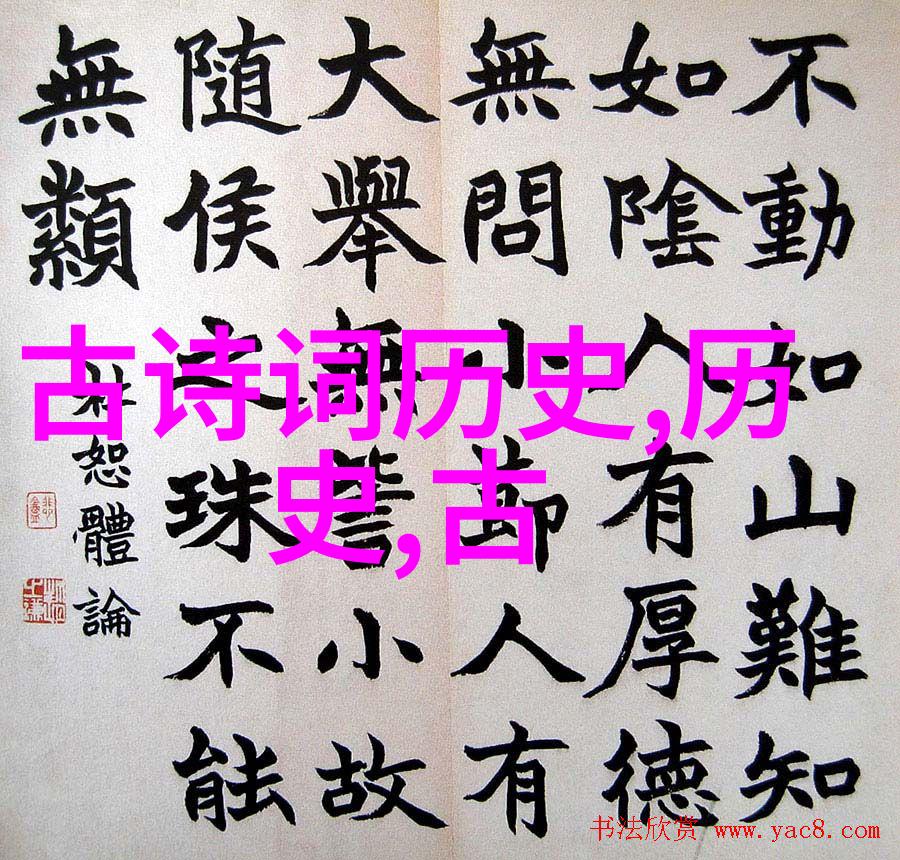 不動如山難知
如隂人有厚德
無問小節人有
大舉無訾小故
隨侯之珠不能
無纇
杜恕體論
古诗词历史,历
史,古
书法欣赏 www.yac8.com